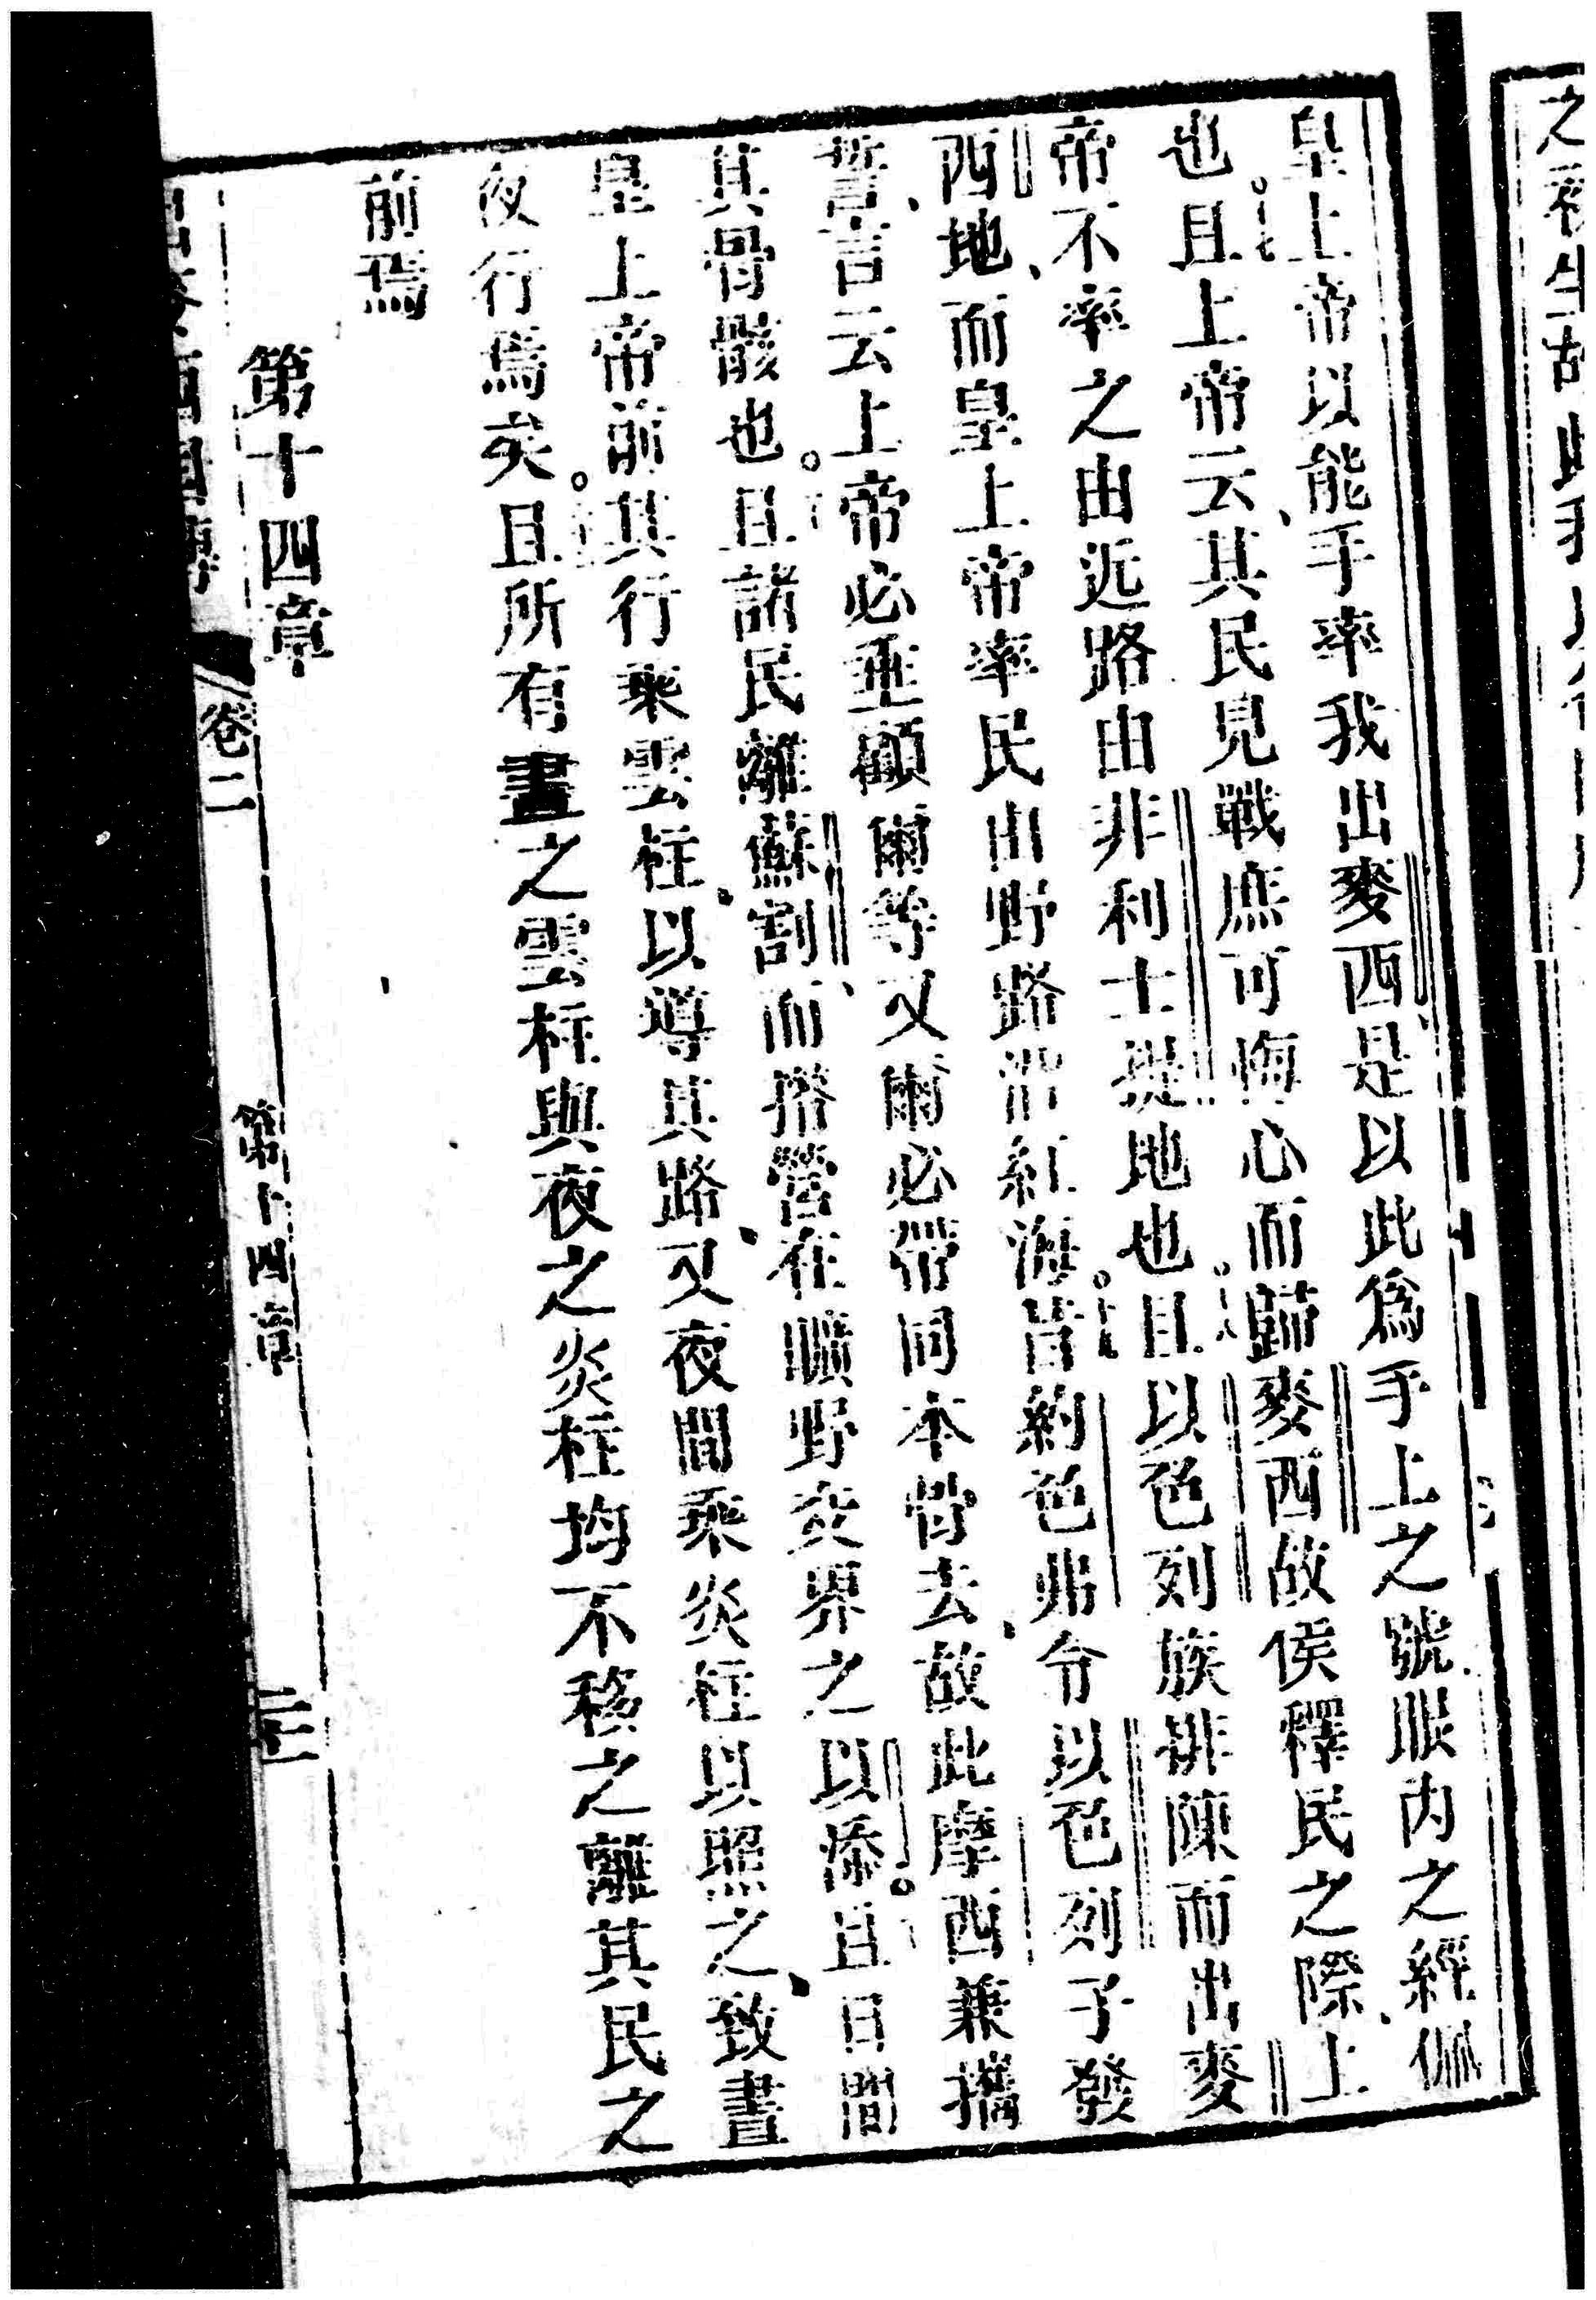 皇上帝以能手率我出麥西是以此為手上之號眼內之經佩
也且上帝云其民見戰庶可悔心而歸麥西故俟釋民之際上
帝不率之由近路由非利士提地也且以色列族排陳而出麥
西地而皇上帝率民由野路沿紅海昔約色弗令以色列子發
誓言云上帝必垂顧爾等又爾必帶同本骨去故此摩西兼攜
其骨骸也且諸民離蘇割而搭營在曠野交界之以㤠且日間
皇上帝前其行乘雲柱以導其路又夜間乘炎柱以照之致晝
夜行焉矣且所有晝之雲柱與夜之炎柱均不移之離其民之
前焉
第十四章
卷二
第十四章